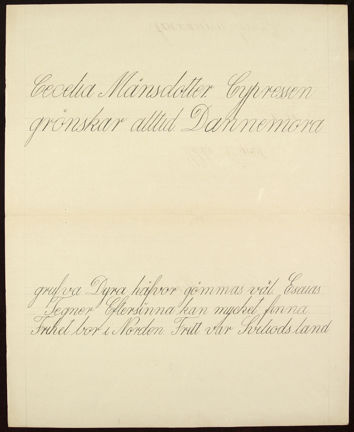 Cecelia Månsdotter Cypressen
grönskar alltid Dannemora
grufva Dyra håfvor gömmas väl. Esaias
Tegner Eftersinna kan mycket finna
Frihet bor i Norden Fritt var Svithiods land